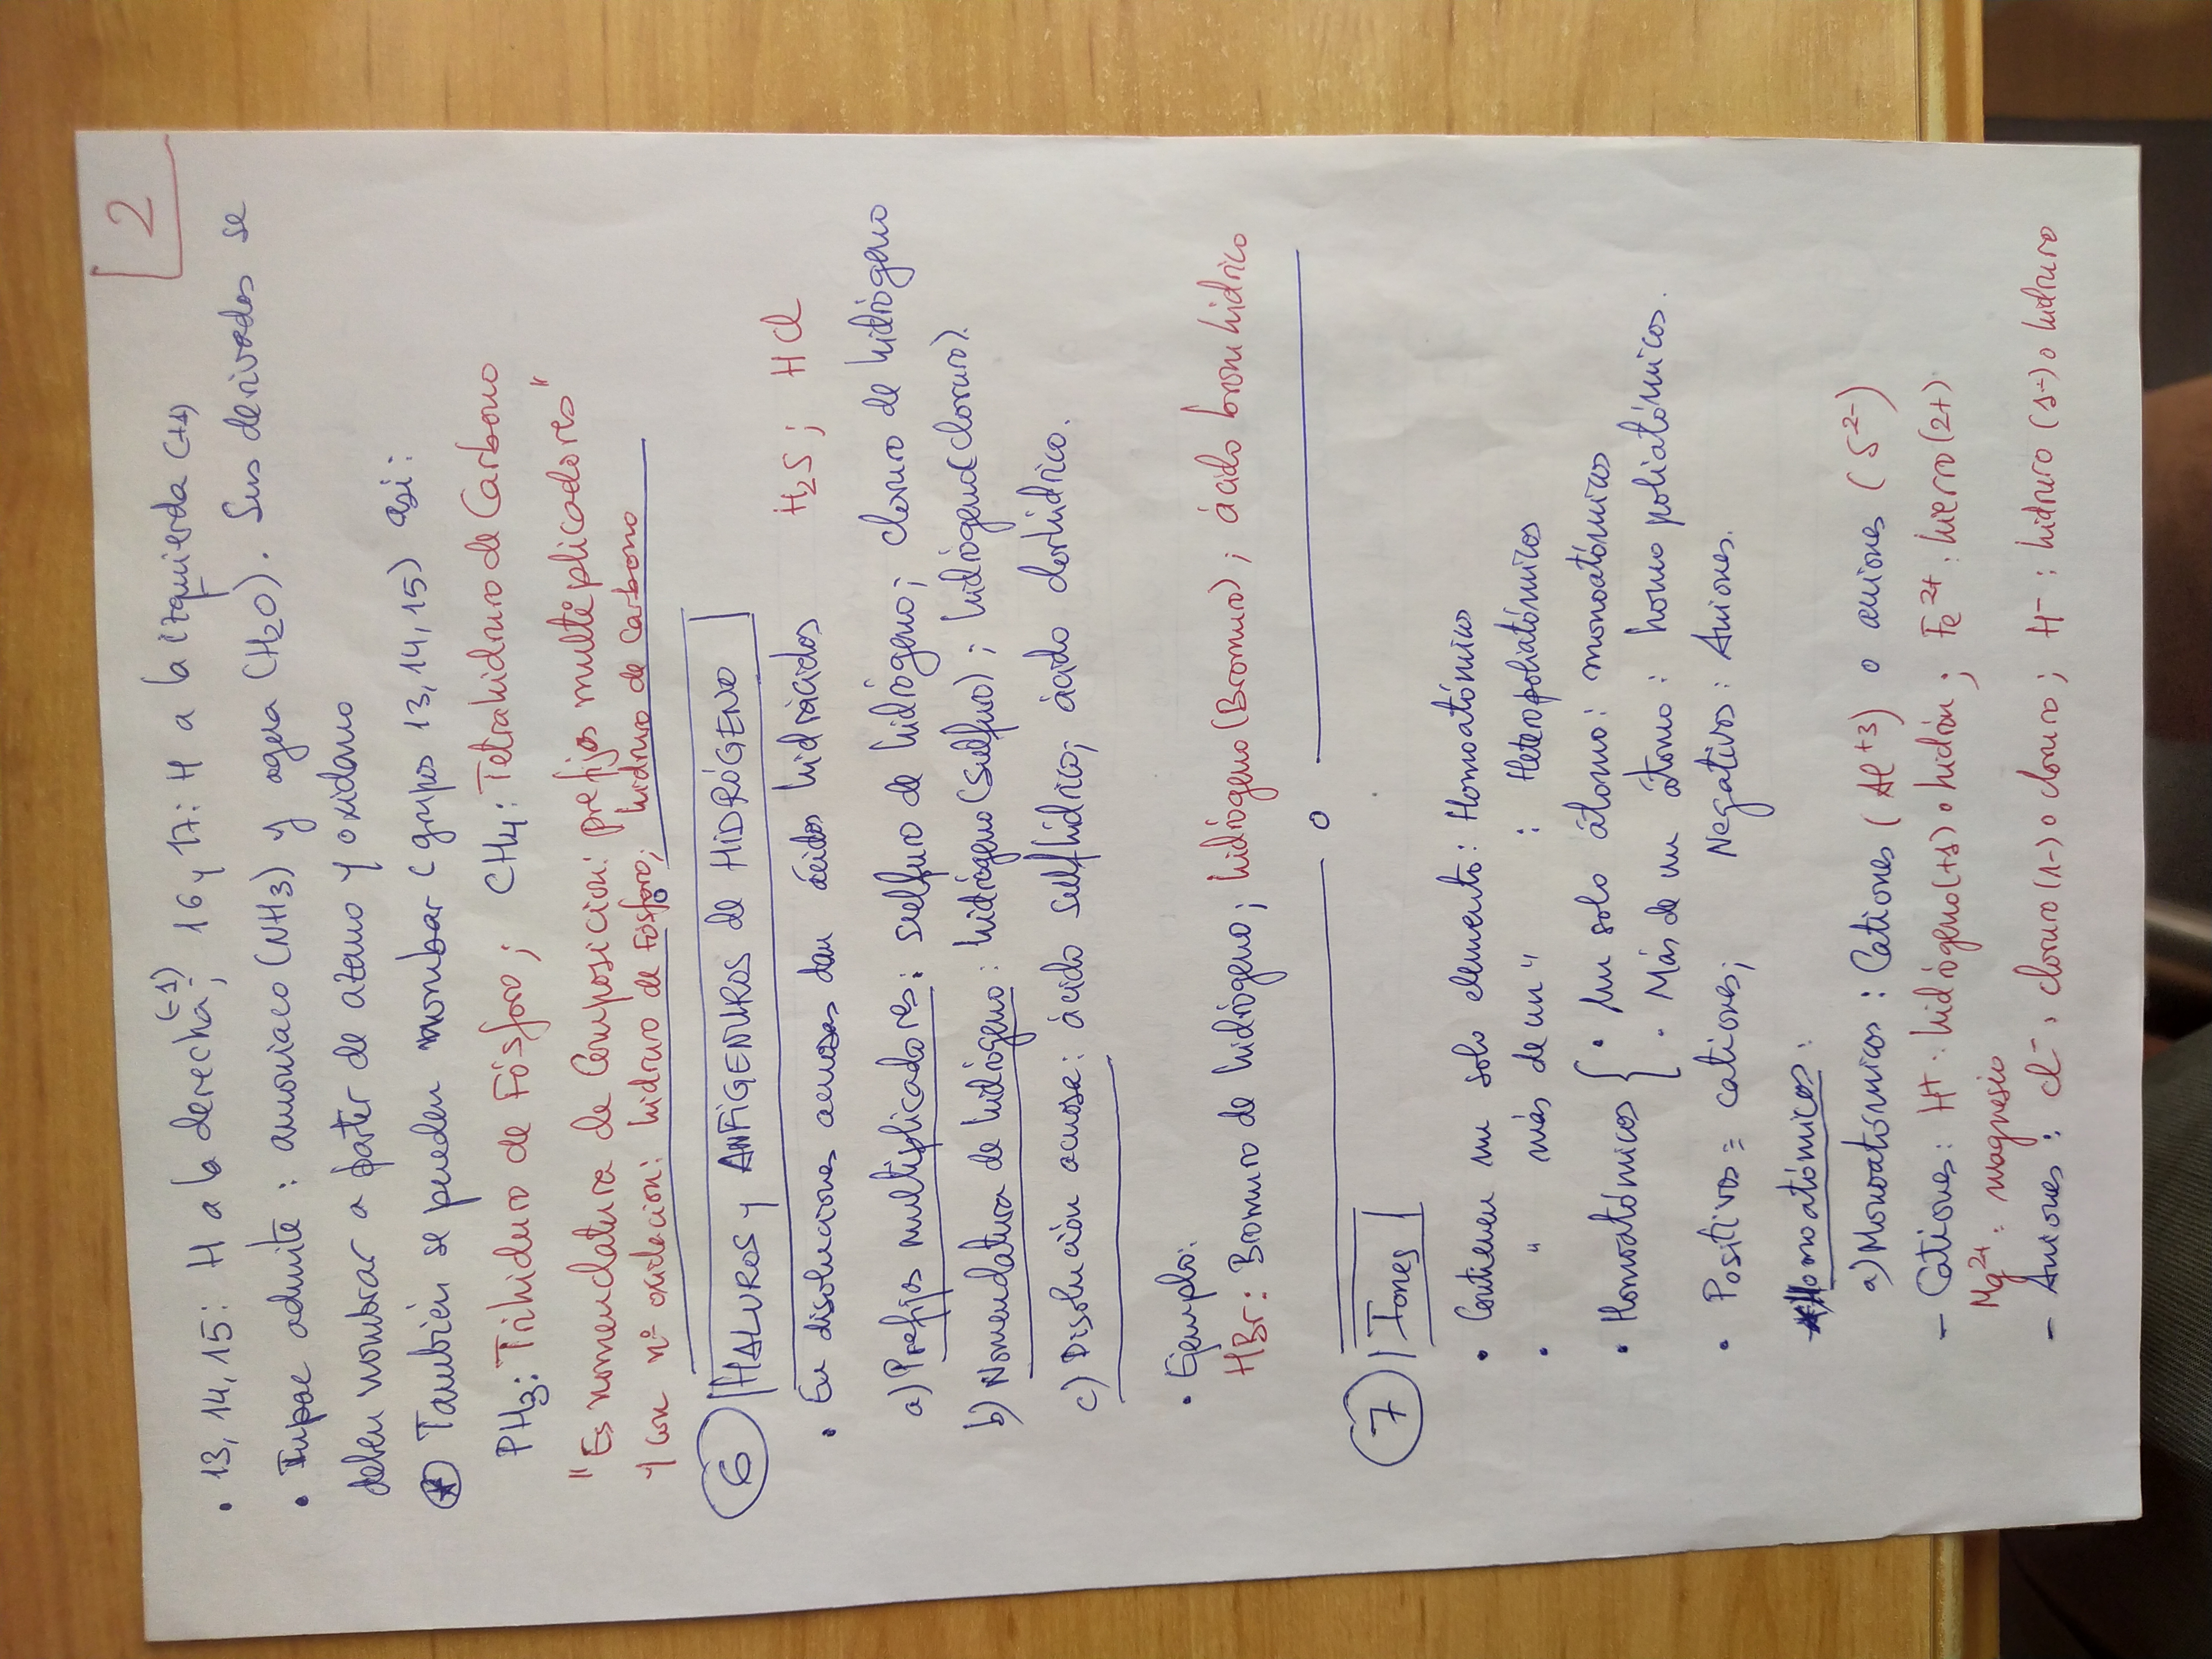 2
• 13, 14, 15: H a la derecha (-1); 16 y 17: H a la izquierda (+1)
• Iupac admite: amoniaco (NH3) y agua (H2O). Sus derivados se
deben nombrar a parter de azano y oxidano
* También se pueden nombar (grupos 13, 14, 15) así:
PH3: Trihiduro de Fósforo; CH4: Tetrahidruro de Carbono
"Es nomenclatura de Composición: prefijos multiplicadores"
y con nº oxidación: hidruro de Fósforo; hidruro de Carbono
6 HALUROS y ANFÍGENUROS de HIDRÓGENO
• En disoluciones acuosas dan ácidos hidrácidos H2S; HCl
a) Prefijos multiplicadores: sulfuro de hidrógeno; cloruro de hidrógeno
b) Nomenclatura de hidrógeno: hidrógeno(sulfuro); hidrógeno(cloruro).
c) Disolución acuosa: ácido sulfhídrico; ácido clorhídrico.
• Ejemplo:
HBr: Bromuro de hidrógeno; hidrógeno(Bromuro); ácido bromhídrico
7 Iones
• Contienen un solo elemento: Homoatómico
• " más de un " : Heteropoliatómicos
• Homoatómicos { • un solo átomo: monoatómicos
• Más de un átomo: homopoliatómicos.
• Positivos= cationes; Negativos: Aniones.
*Homoatómicos:
a) Monoatómicos: Cationes (Al+3) o aniones (S2-)
- Cationes: H+: hidrógeno(+1) o hidrón; Fe2+: hierro(2+)
Mg2+: magnesio
- Aniones: Cl-: cloruro(1-) o cloruro; H-: hidruro(1-) o hidruro